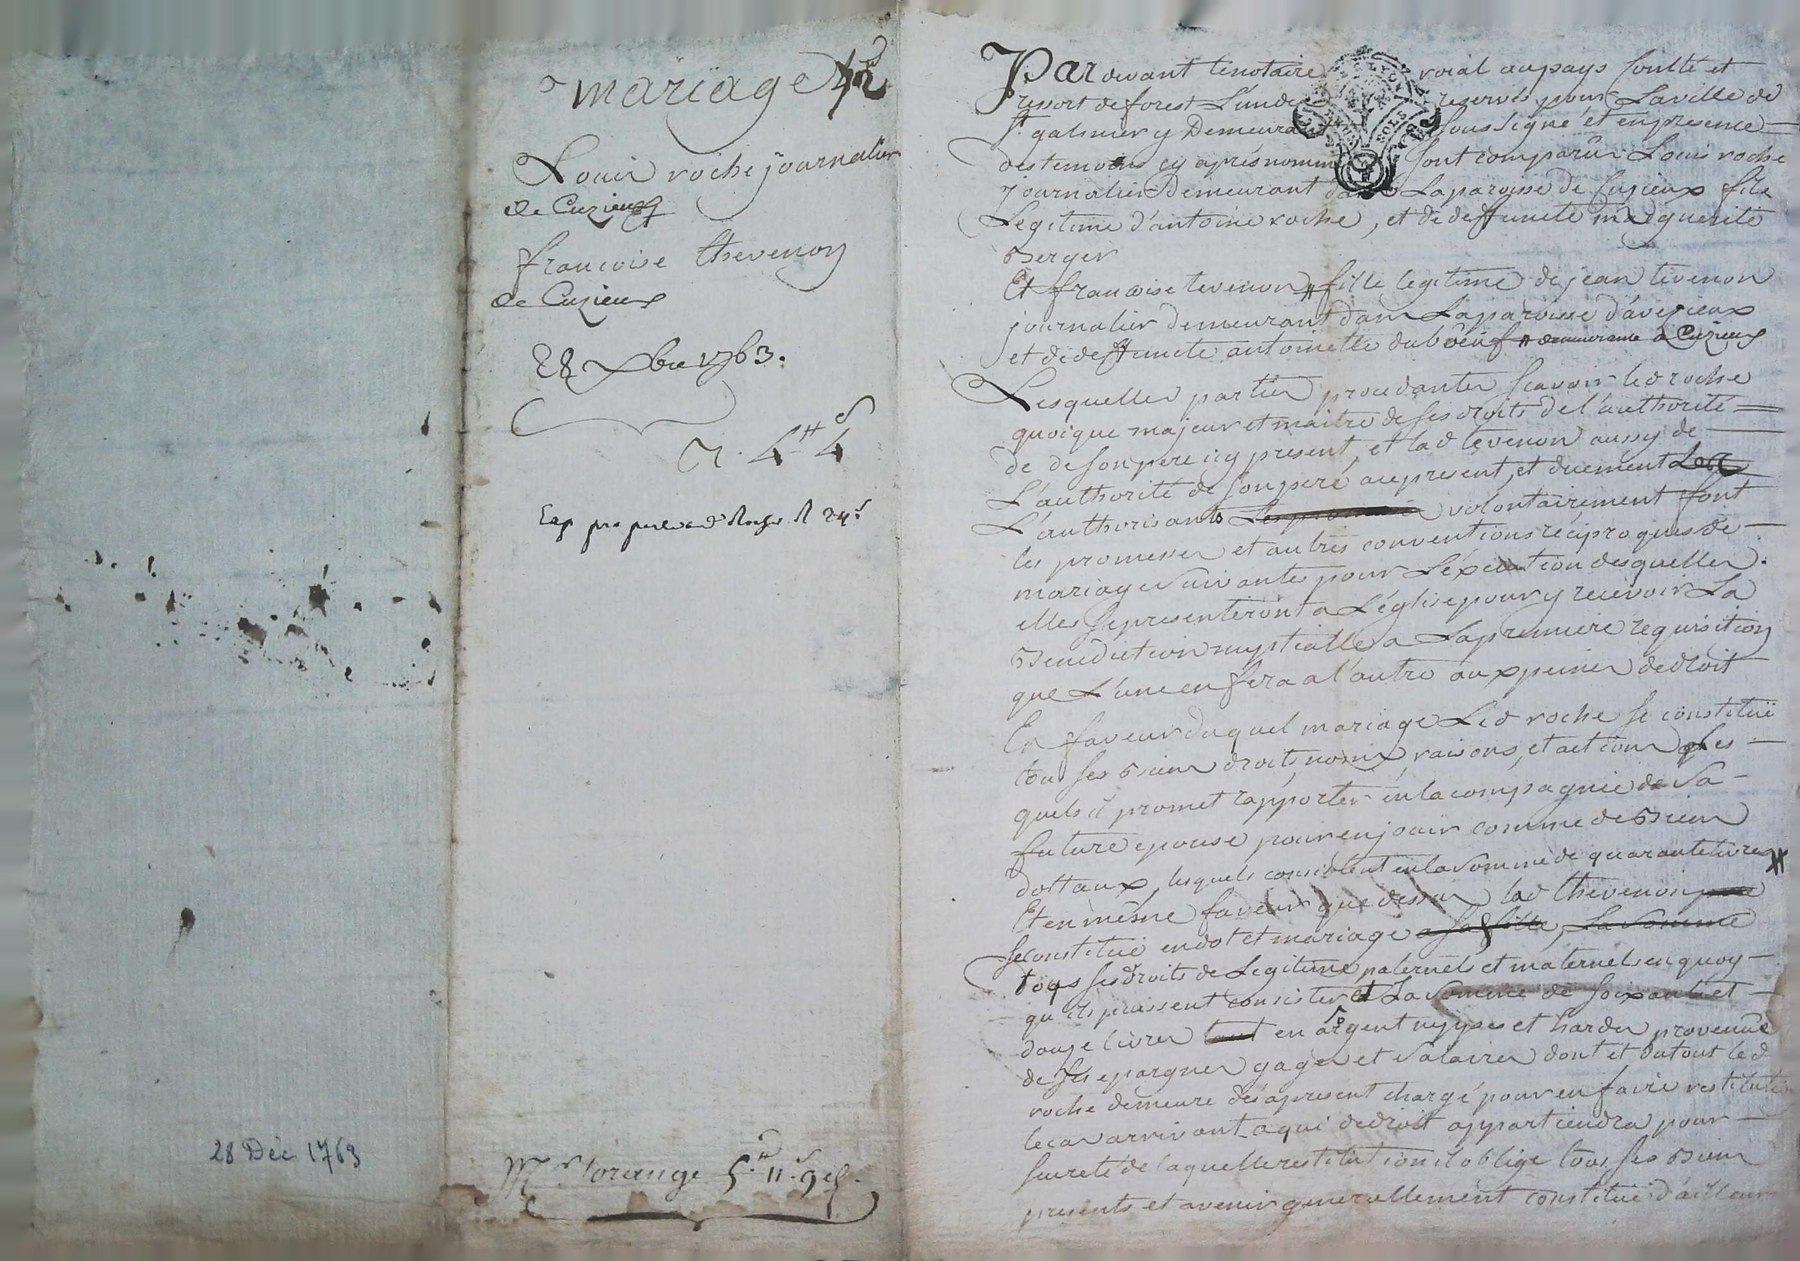 mariage
Louis roche journalier
de Cuzieux
francoise thevenon
de Cuzieux
28 xbre 1763.
28 Dec 1763
Mr. Lorange 5.# 11.s 9d.
Par devant le notaire roial au pays Comté et
ressort de forest L'un des reservés pour La ville de
St galmier y Demeurant soussigné et en presence
des temoins cy aprés nommés sont comparûs Louis roche
journalier Demeurant dans La paroisse de Cuzieux fils
Legitime d'antoine roche, et de deffuncte marguerite
Berger
Et francoise tevenon # fille legitime de jean tevenon
journalier demeurant dans La paroisse d'avezieux
et de deffuncte antoinette duboeuf # demeurante a Cuzieux
Lesquelles parties procedantes scavoir led roche
quoique majeur et maitre de ses droits de l'authorité
de de son pere icy present, et lad tevenon aussy de
L'authorité de son pere aupresent, et duement
L'authorisants volontairement font
les promesses et autres conventions réciproques de
mariage suivantes pour L'éxécution desquelles
elles se presenteront a L'église pour y recevoir La
Benediction nuptialle a La premiere requisition
que L'une en fera a l'autre aux peines de droit
En faveur duquel mariage Led roche se constitüe
tous ses biens droits, noms, raisons, et actions lles
quels il promet rapporter en la compagnie de sa
future epouse pour en jouir comme de Biens
dottaux, lesquels consistent en la somme de quarante livres #
Et en mesme faveur que dessus lad thevenon
se constitue en dot et mariage a sa fille, La somme
tous ses droits de Legitime paternels et maternels en quoy
qu'ils puissent consister et La somme de soixante et
douze livres tant en argent nypes et hardes provenüe
de ses epargnes gages et salaires dont et du tout led
roche demeure dés apresent chargé pour en faire restitution
le cas arrivant a qui de droit appartiendra pour
sureté de laquelle restitution il oblige tous ses Biens
presents et avenir generallement constitüe d'ailleurs